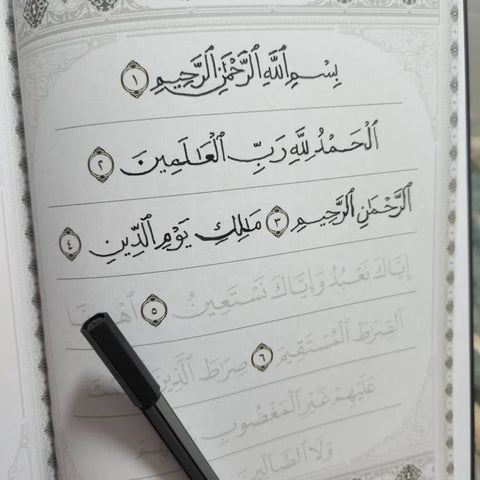 بِسْمِ ٱللَّهِ ٱلرَّحْمَٰنِ ٱلرَّحِيمِ ١
ٱلْحَمْدُ لِلَّهِ رَبِّ ٱلْعَٰلَمِينَ ٢
ٱلرَّحْمَٰنِ ٱلرَّحِيمِ ٣ مَٰلِكِ يَوْمِ ٱلدِّينِ ٤
إِيَّاكَ نَعْبُدُ وَإِيَّاكَ نَسْتَعِينُ ٥
ٱلصِّرَٰطَ ٱلْمُسْتَقِيمَ ٦ صِرَٰطَ ٱلَّذِينَ
عَلَيْهِمْ غَيْرِ ٱلْمَغْضُوبِ
وَلَا ٱلضَّالِّينَ